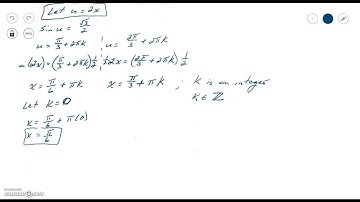 Let u = 2x
sin u = √3/2
u = π/3 + 2πk ; u = 2π/3 + 2πk
(2x) = (π/3 + 2πk) 1/2 ; 1/2 · 2x = (2π/3 + 2πk) 1/2
x = π/6 + πk x = π/3 + πk ; k is an integer
Let k = 0 k ∈ ℤ
x = π/6 + π(0)
x = π/6